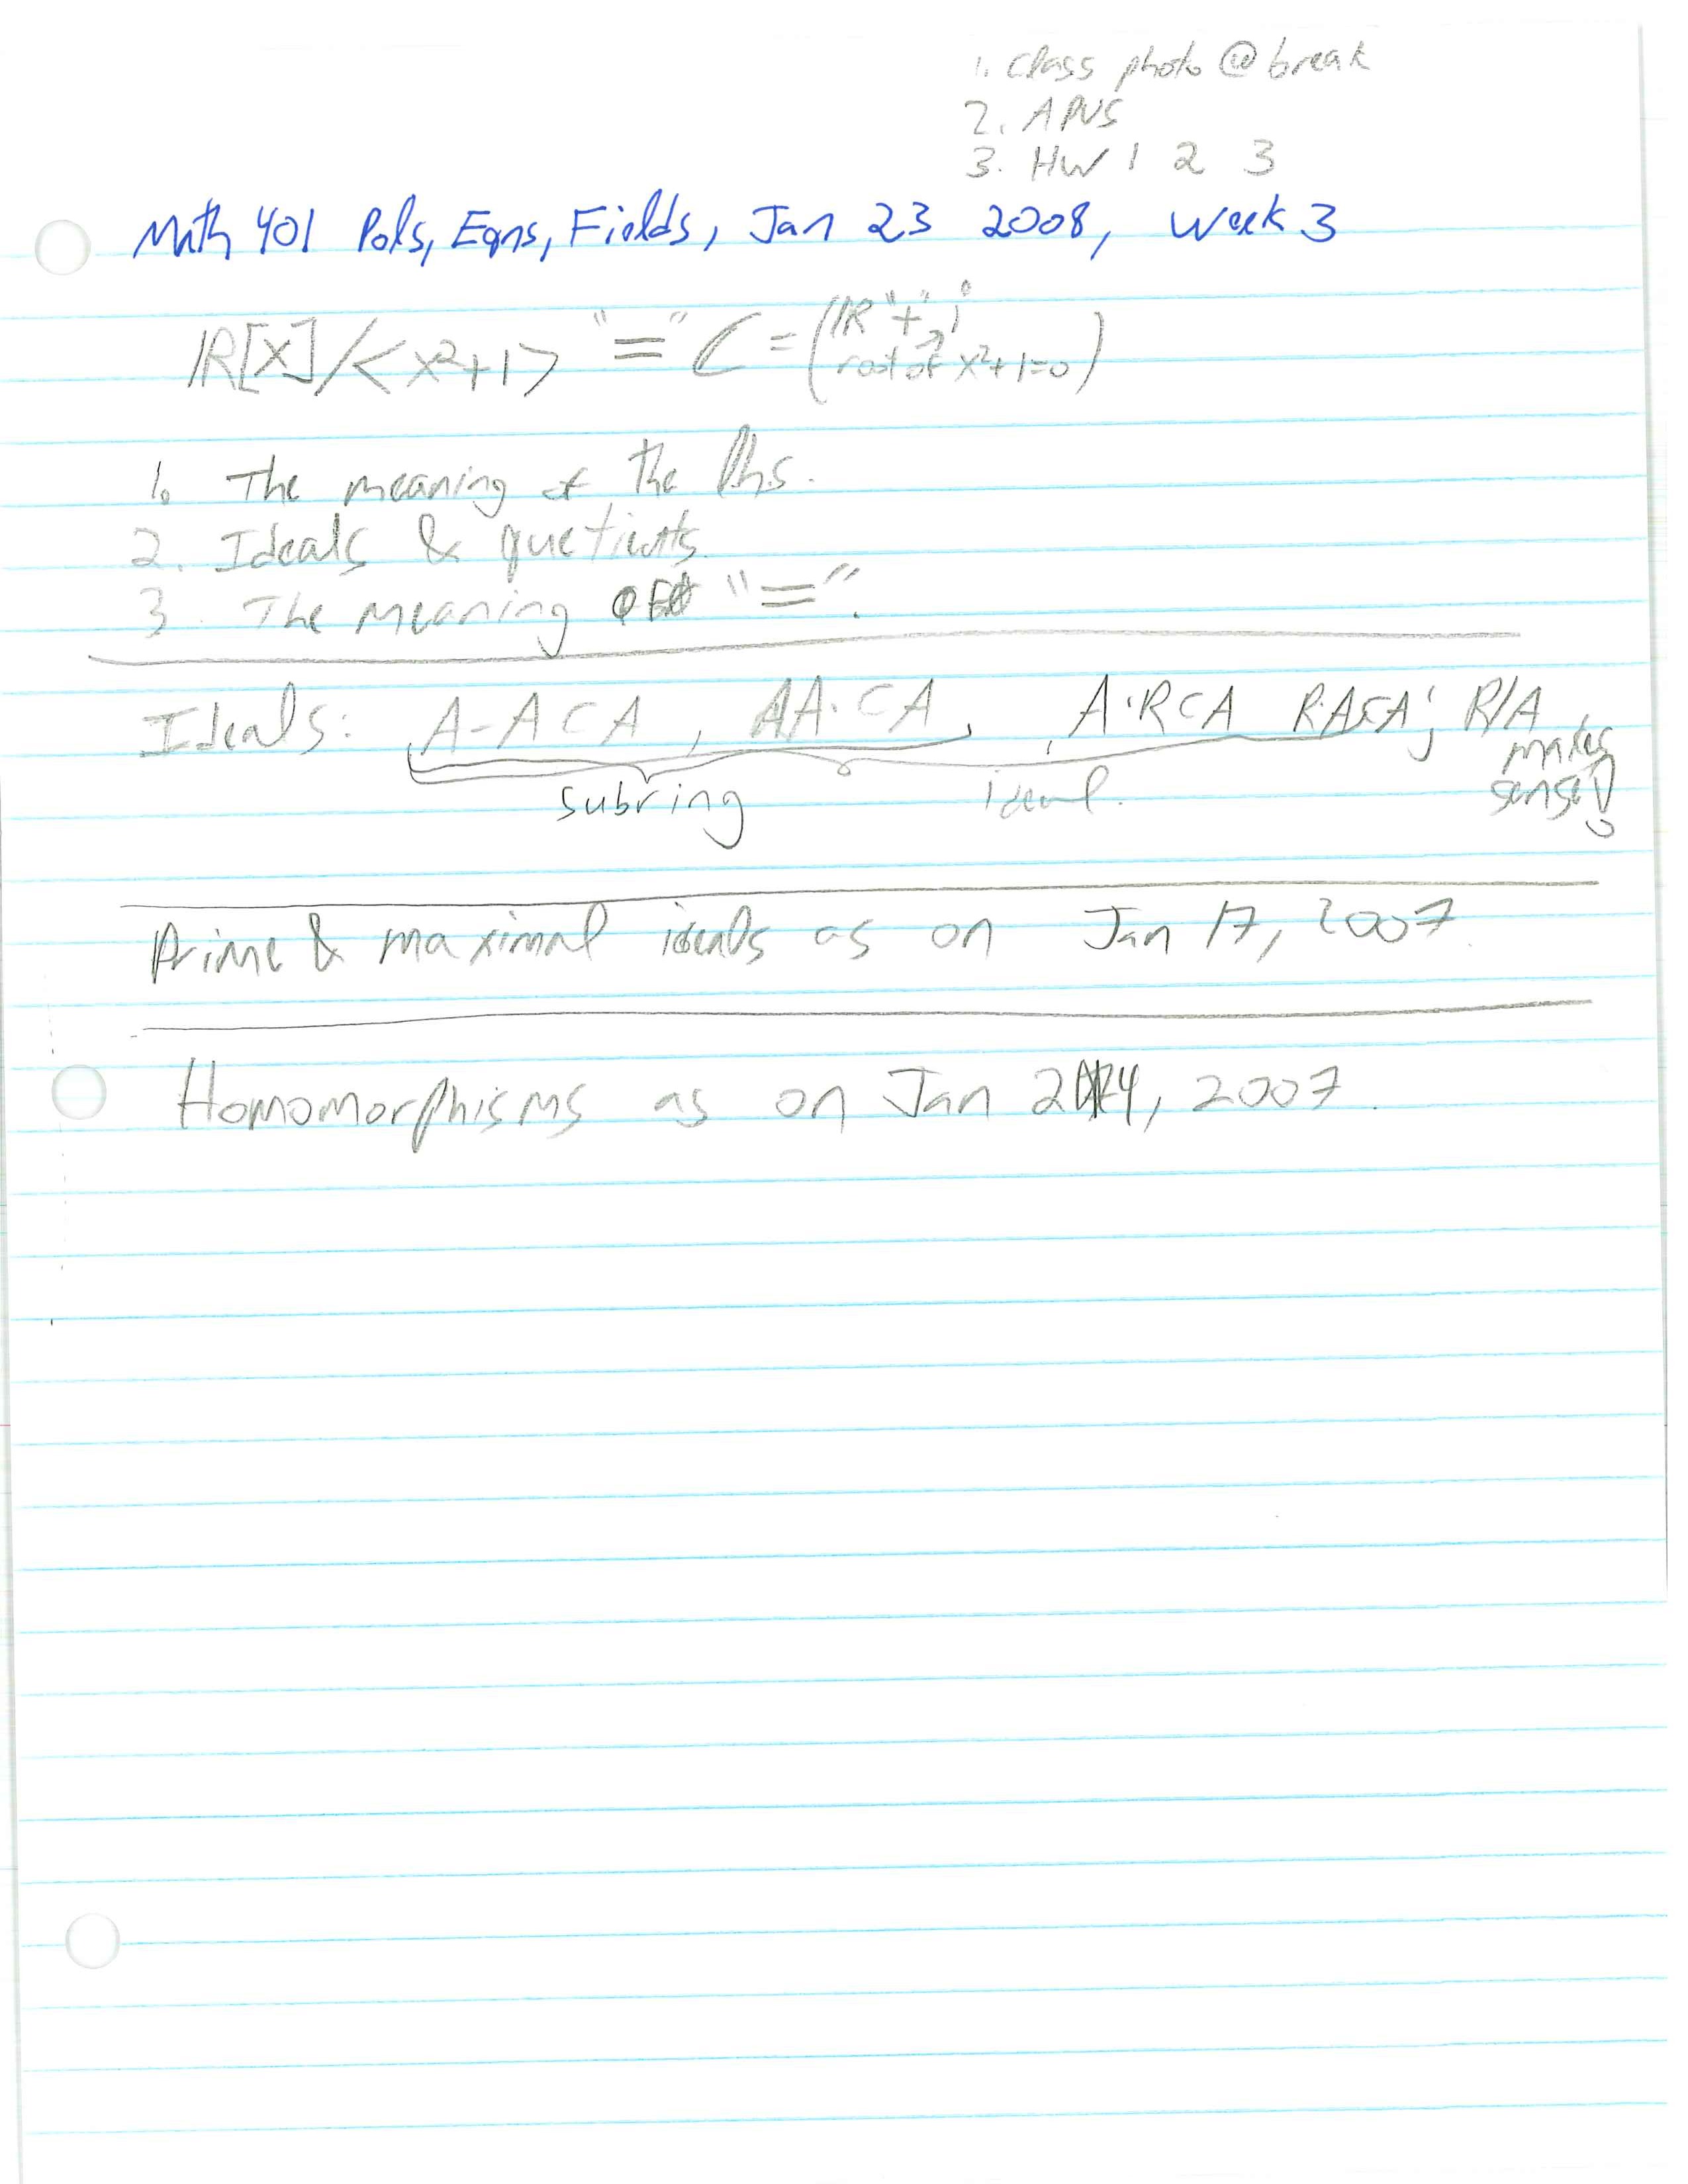 1. class photo @ break
2. APUS
3. HW 1 2 3
Math 401 Pols, Eqns, Fields, Jan 23 2008, Week 3
ℝ[x]/<x²+1> "=" ℂ = (ℝ "+" i
root of x²+1=0)
1. The meaning of the lhs.
2. Ideals & quetients.
3. The meaning of "=".
Ideals: A-A⊂A, AA⊂A, A·R⊂A R·A⊂A; R/A
makes
sense!
subring ideal.
Prime & maximal ideals as on Jan 17, 2007.
Homomorphisms as on Jan 24, 2007.